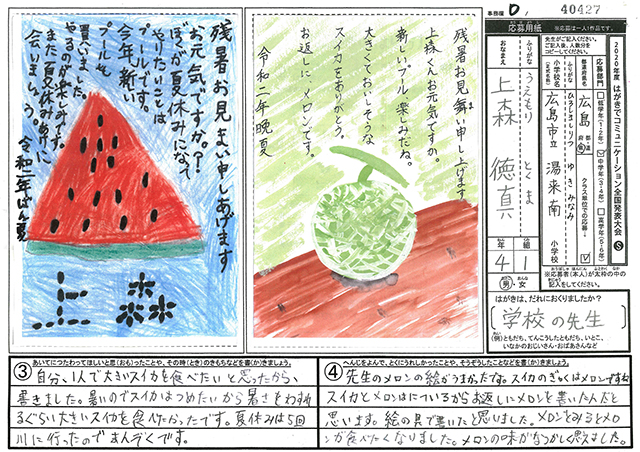 残暑お見まい申しあげます
お元気ですか。?
ぼくが夏休みになって
やりたいことは
プールです。
今年、新しい
プールを
買いました。
やるのが楽しみです。
また夏休みあけに
会いましょう。
令和二年ばん夏
上森
残暑お見舞い申し上げます
上森くんお元気ですか。
新しいプール楽しみだね。
大きくておいしそうな
スイカをありがとう。
お返しに、メロンです。
令和二年晩夏
事務欄 D
40427
応募用紙
※応募は一人1作品です。
先生がご記入ください。
ご記入後、人数分を
コピーしてください。
2020年度 はがきでコミュニケーション全国発表大会 S
応募部門
低学年(1・2年)
中学年(3・4年)
高学年(5・6年)
都道府県名
広島
都道府県
クラス単位での応募
ふりがな
ひろしましりつ ゆきみなみ
小学校名
(正式名称)
広島市立 湯来南 小学校
※応募者(本人)が太枠の中の
記入をしてください。
ふりがな
うえもり とくま
おなまえ
上森 徳真
年 組
4 1
男・女
はがきは、だれにおくりましたか?
(学校の先生)
(例)ともだち、てんこうしたともだち、いとこ、
いなかのおじいさん・おばあさんなど
③ あいてにつたわってほしいと思(おも)ったことや、その時(とき)のきもちなどを書(か)きましょう。
自分、1人で大きいスイカを食べたいと思ったから、
書きました。暑いのでスイカはつめたいから暑さをわすれ
るぐらい大きいスイカを食べたかったです。夏休みは5回
川に行ったのでまんぞくです。
④ へんじをよんで、とくにうれしかったことや、そうぞうしたことなどを書(か)きましょう。
先生のメロンの絵がうまかったです。スイカのぎゃくはメロンですね
スイカとメロンはにているからお返しにメロンを書いたんだと
思います。絵の具で書いたと思いました。メロンをみるとメロ
ンが食べたくなりました。メロンの味がなつかしく思えました。